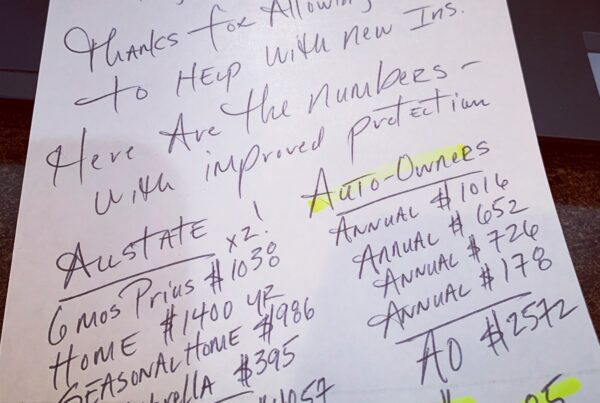 Thanks for Allowing
to Help with new Ins.
Here Are the numbers -
with improved protection
Allstate
x2!
6 mos Prius $1038
Home $1400 yr
Seasonal Home $986
$395
Auto-Owners
Annual $1016
Annual $652
Annual $726
Annual $178
AO $2572